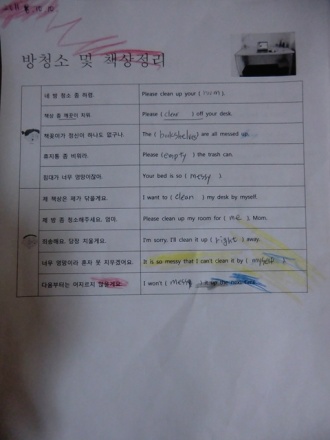 방청소 및 책상정리
네 방 청소 좀 하렴.
Please clean up your ( room ).
책상 좀 깨끗이 치워.
Please ( clear ) off your desk.
책꽂이가 정신이 하나도 없구나.
The ( bookshelves) are all messed up.
휴지통 좀 비워라.
Please (empty ) the trash can.
침대가 너무 엉망이잖아.
Your bed is so ( messy ).
제 책상은 제가 닦을게요.
I want to ( clean ) my desk by myself.
제 방 좀 청소해주세요, 엄마.
Please clean up my room for ( me ), Mom.
죄송해요. 당장 치울게요.
I'm sorry. I'll clean it up ( right ) away.
너무 엉망이라 혼자 못 치우겠어요.
It is so messy that I can't clean it by ( myself ).
다음부터는 어지르지 않을게요.
I won't ( messy ) it up the next time.